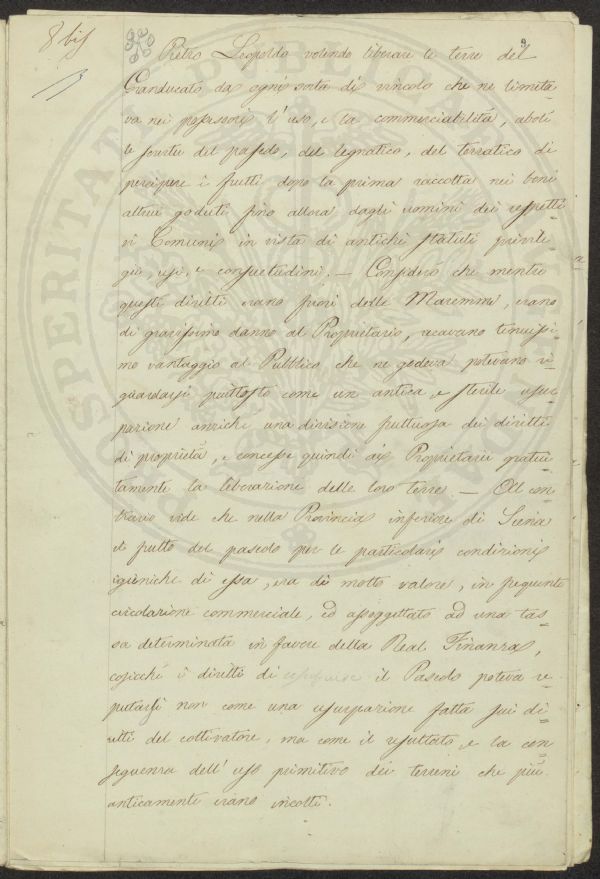 8 bis
9
Pietro Leopoldo volendo liberare le terre del
Granducato da ogni sorta di vincolo che ne limita-
va nei possessori l'uso, e la commerciabilità, abolì
le servitù del pascolo, del legnatico, del terratico di
percipere i frutti dopo la prima raccolta nei beni
altrui goduti fino allora dagli uomini dei rispetti
vi Comuni in vista di antichi Statuti privile
gio, usi, e consuetudini. — Considerò che mentre
questi diritti erano fuori delle Maremme, erano
di gravissimo danno al Proprietario, recavano tenuissi-
mo vantaggio al Pubblico che ne godeva potevano ri-
guardarsi piuttosto come un antica e sterile usur-
pazione anziche una divisione fruttuosa dei diritti
di proprietà, e concesse quindi ai Proprietarii gratui-
tamente la liberazione delle loro terre — Al con-
trario vide che nella Provincia inferiore di Siena
il frutto del pascolo per le particolari condizioni
igieniche di essa, era di molto valore, in frequente
circolazione commerciale, ed assoggettato ad una tas-
sa determinata in favore della Real Finanza,
cosicchè i diritti di il Pascolo poteva re-
putarsi non come una usurpazione fatta sui di-
ritti del coltivatore, ma come il resultato e la con-
seguenza dell'uso primitivo dei terreni che più
anticamente erano incolti.
PROSPERITATI PUBLICAE